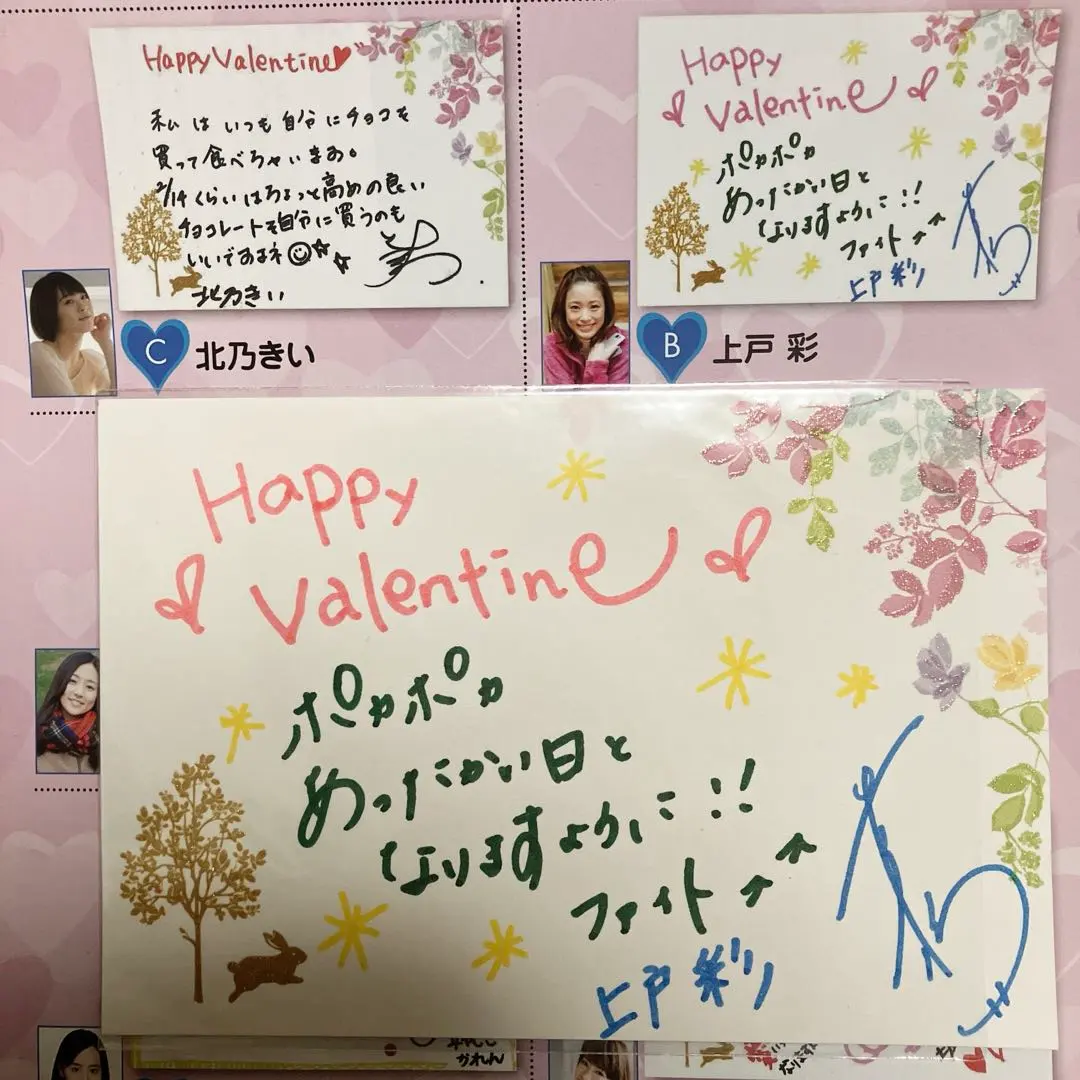 Happy Valentine
私はいつも自分にチョコを
買って食べちゃいます。
2/14くらいはちょっと高めの良い
チョコレートを自分に買うのも
いいですネ
北乃きい
C 北乃きい
Happy
Valentine
ポカポカ
あったかい日と
なりますように!!
ファイト↗↗
上戸彩
B 上戸 彩
Happy
Valentine
ポカポカ
あったかい日と
なりますように!!
ファイト↗↗
上戸彩
かれん